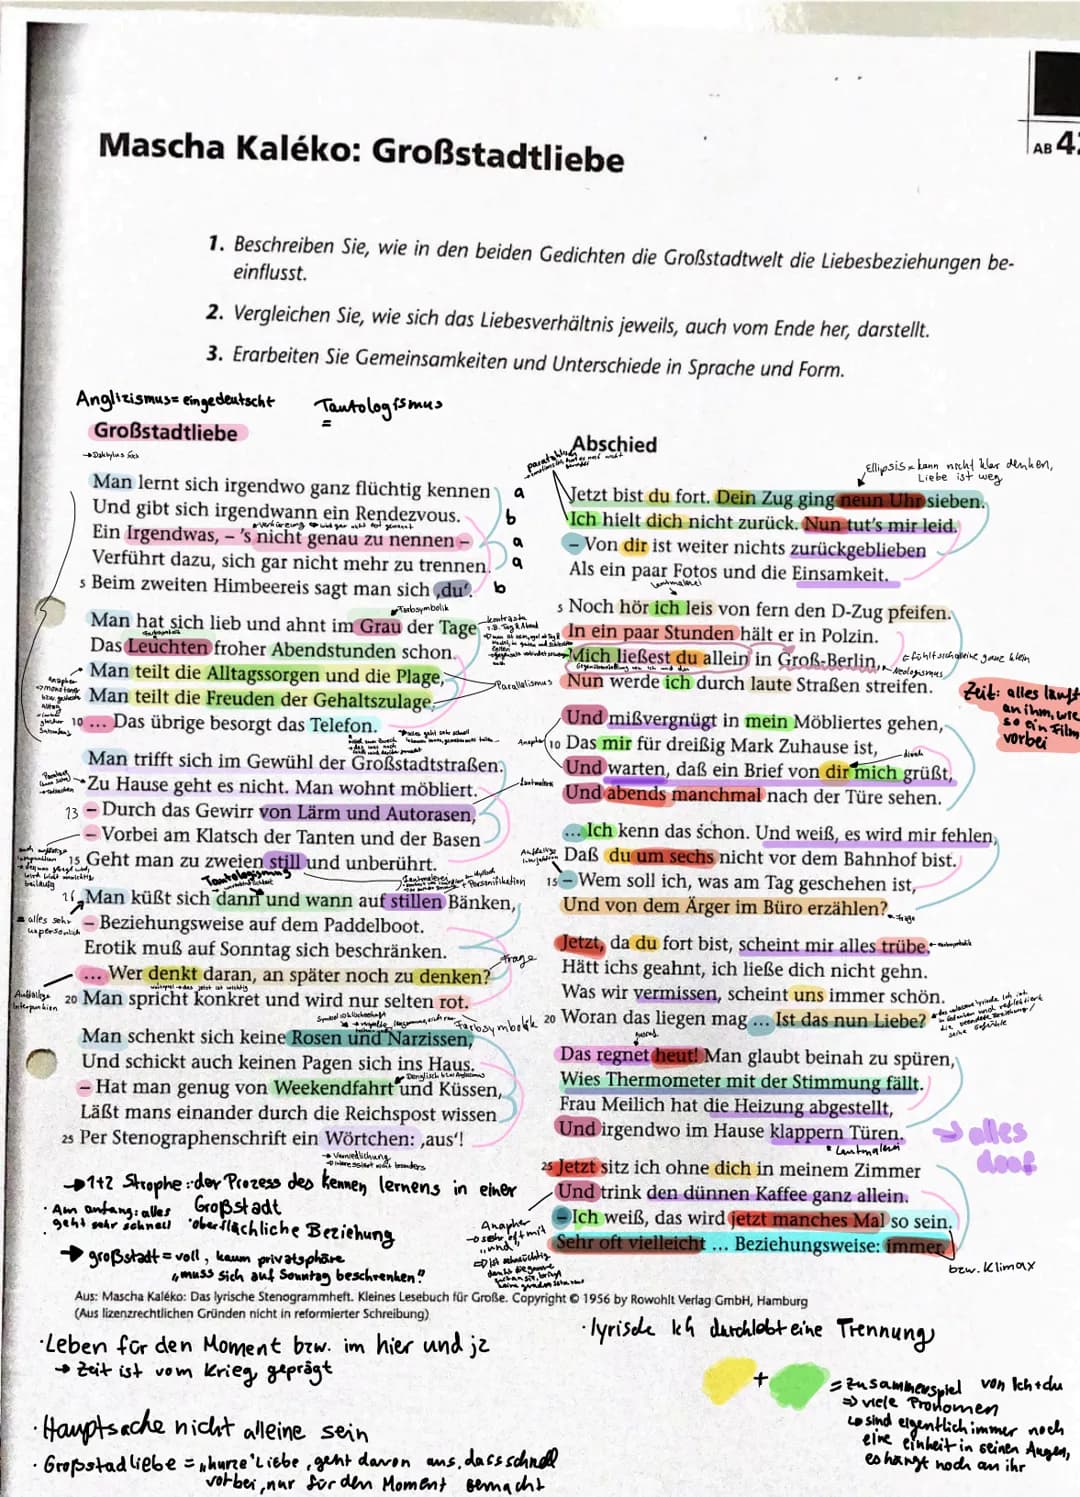 AB 42
Mascha Kaléko: Großstadtliebe
1. Beschreiben Sie, wie in den beiden Gedichten die Großstadtwelt die Liebesbeziehungen be-
einflusst.
2. Vergleichen Sie, wie sich das Liebesverhältnis jeweils, auch vom Ende her, darstellt.
3. Erarbeiten Sie Gemeinsamkeiten und Unterschiede in Sprache und Form.
Anglizismus = eingedeutscht
Tautologismus
=
Großstadtliebe
Man lernt sich irgendwo ganz flüchtig kennen a
Und gibt sich irgendwann ein Rendezvous. b
Ein Irgendwas, – 's nicht genau zu nennen – a
Verführt dazu, sich gar nicht mehr zu trennen. a
5 Beim zweiten Himbeereis sagt man sich ‚du‘. b
Farbsymbolik
Man hat sich lieb und ahnt im Grau der Tage
Das Leuchten froher Abendstunden schon.
Man teilt die Alltagssorgen und die Plage,
Anapher
Parallelismus
Man teilt die Freuden der Gehaltszulage,
10 ... Das übrige besorgt das Telefon.
Man trifft sich im Gewühl der Großstadtstraßen.
Zu Hause geht es nicht. Man wohnt möbliert.
13 – Durch das Gewirr von Lärm und Autorasen,
– Vorbei am Klatsch der Tanten und der Basen
15 Geht man zu zweien still und unberührt.
Tautologismus
+ Personifikation
16 Man küßt sich dann und wann auf stillen Bänken,
– Beziehungsweise auf dem Paddelboot.
= alles sehr
unpersönlich
Erotik muß auf Sonntag sich beschränken.
... Wer denkt daran, an später noch zu denken?
Frage
20 Man spricht konkret und wird nur selten rot.
Farbsymbolik
Man schenkt sich keine Rosen und Narzissen,
Und schickt auch keinen Pagen sich ins Haus.
– Hat man genug von Weekendfahrt und Küssen,
Läßt mans einander durch die Reichspost wissen
25 Per Stenographenschrift ein Wörtchen: ‚aus‘!
→ Verniedlichung
→ 1+2 Strophe: der Prozess des kennen lernens in einer
Großstadt
· Am anfang: alles
geht sehr schnell
oberflächliche Beziehung
→ großstadt = voll, kaum privatsphäre
„muss sich auf Sonntag beschrenken."
Abschied
Ellipsis = kann nicht klar denken,
Liebe ist weg
Jetzt bist du fort. Dein Zug ging neun Uhr sieben.
Ich hielt dich nicht zurück. Nun tut's mir leid.
– Von dir ist weiter nichts zurückgeblieben
Als ein paar Fotos und die Einsamkeit.
5 Noch hör ich leis von fern den D-Zug pfeifen.
In ein paar Stunden hält er in Polzin.
Mich ließest du allein in Groß-Berlin,
= fühlt sich alleine ganz klein
Neologismus
Nun werde ich durch laute Straßen streifen.
Zeit: alles läuft
an ihm, wie
so ein Film
vorbei
Und mißvergnügt in mein Möbliertes gehen,
Anapher
10 Das mir für dreißig Mark Zuhause ist,
Und warten, daß ein Brief von dir mich grüßt,
Und abends manchmal nach der Türe sehen.
... Ich kenn das schon. Und weiß, es wird mir fehlen,
Daß du um sechs nicht vor dem Bahnhof bist.
15 – Wem soll ich, was am Tag geschehen ist,
Und von dem Ärger im Büro erzählen?
Frage
Jetzt, da du fort bist, scheint mir alles trübe.
Hätt ichs geahnt, ich ließe dich nicht gehn.
Was wir vermissen, scheint uns immer schön.
20 Woran das liegen mag ... Ist das nun Liebe?
Das regnet heut! Man glaubt beinah zu spüren,
Wies Thermometer mit der Stimmung fällt.
Frau Meilich hat die Heizung abgestellt,
Und irgendwo im Hause klappern Türen.
Lautmalerei
→ alles
doof
25 Jetzt sitz ich ohne dich in meinem Zimmer
Und trink den dünnen Kaffee ganz allein.
– Ich weiß, das wird jetzt manches Mal so sein.
Sehr oft vielleicht ... Beziehungsweise: immer.
bzw. Klimax
Anapher
→ sehr oft mit
„und"
Aus: Mascha Kaléko: Das lyrische Stenogrammheft. Kleines Lesebuch für Große. Copyright © 1956 by Rowohlt Verlag GmbH, Hamburg
(Aus lizenzrechtlichen Gründen nicht in reformierter Schreibung)
· Leben für den Moment bzw. im hier und jz
→ Zeit ist vom Krieg geprägt
· Hauptsache nicht alleine sein
· Großstadliebe = „kurze" Liebe, geht davon aus, dass schnell
vorbei, nur für den Moment gemacht
· lyrische Ich durchlebt eine Trennung
+
= Zusammenspiel von Ich + du
⇒ viele Pronomen
↳ sind eigentlich immer noch
eine einheit in seinen Augen,
es hängt noch an ihr